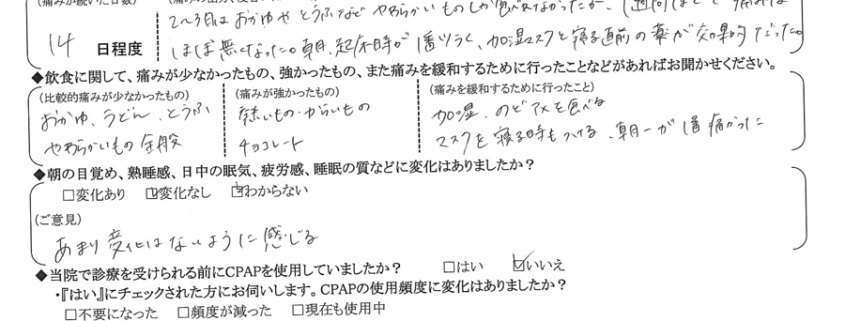 (痛みが続いた日数)
14 日程度
2~3日はおかゆやとうふなどやわらかいものしか食べれなかったが、1週間ほどで痛みは
ほぼ無くなった。朝、起床時が1番ツラく、加湿マスクと寝る直前の薬が効果的だった。
◆飲食に関して、痛みが少なかったもの、強かったもの、また痛みを緩和するために行ったことなどがあればお聞かせください。
(比較的痛みが少なかったもの)
おかゆ、うどん、とうふ
やわらかいもの全般
(痛みが強かったもの)
熱いもの・からいもの
チョコレート
(痛みを緩和するために行ったこと)
加湿、のどアメを食べる
マスクを寝る時もつける、朝一が1番痛かった
◆朝の目覚め、熟睡感、日中の眠気、疲労感、睡眠の質などに変化はありましたか?
□変化あり ☑変化なし ☑わからない
(ご意見)
あまり変化はないように感じる
◆当院で診療を受けられる前にCPAPを使用していましたか? □はい ☑いいえ
・『はい』にチェックされた方にお伺いします。CPAPの使用頻度に変化はありましたか?
□不要になった □頻度が減った □現在も使用中